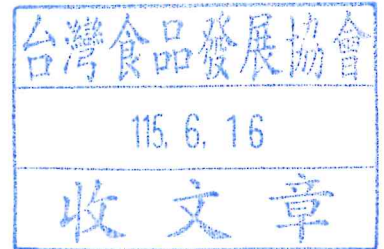 台灣食品發展協會
115. 6. 16
收文章